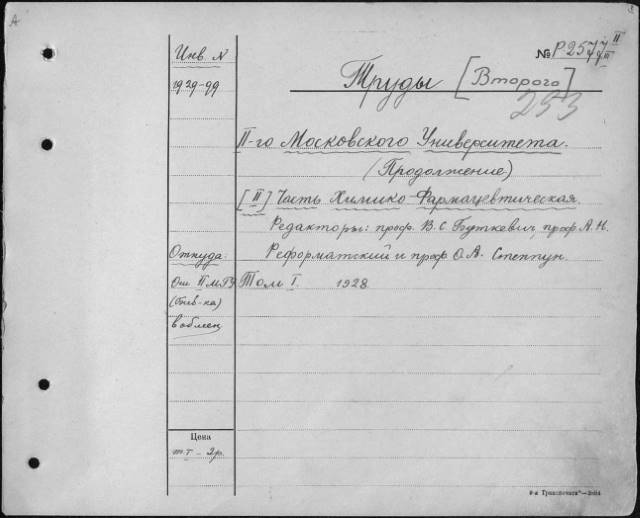 А
Инв. N
1929-99
№ Р 2577 II
III
Труды [Второго]
253
II-го Московского Университета.
(Продолжение)
[II] Часть Химико-Фармацевтическая.
Редакторы: проф. В. С. Буткевич, проф А. Н.
Откуда:
Реформатский и проф О. А. Степпун.
От II МГУ
Том I. 1928
(биб-ка)
в обмен
Цена
т. I - 2 р.